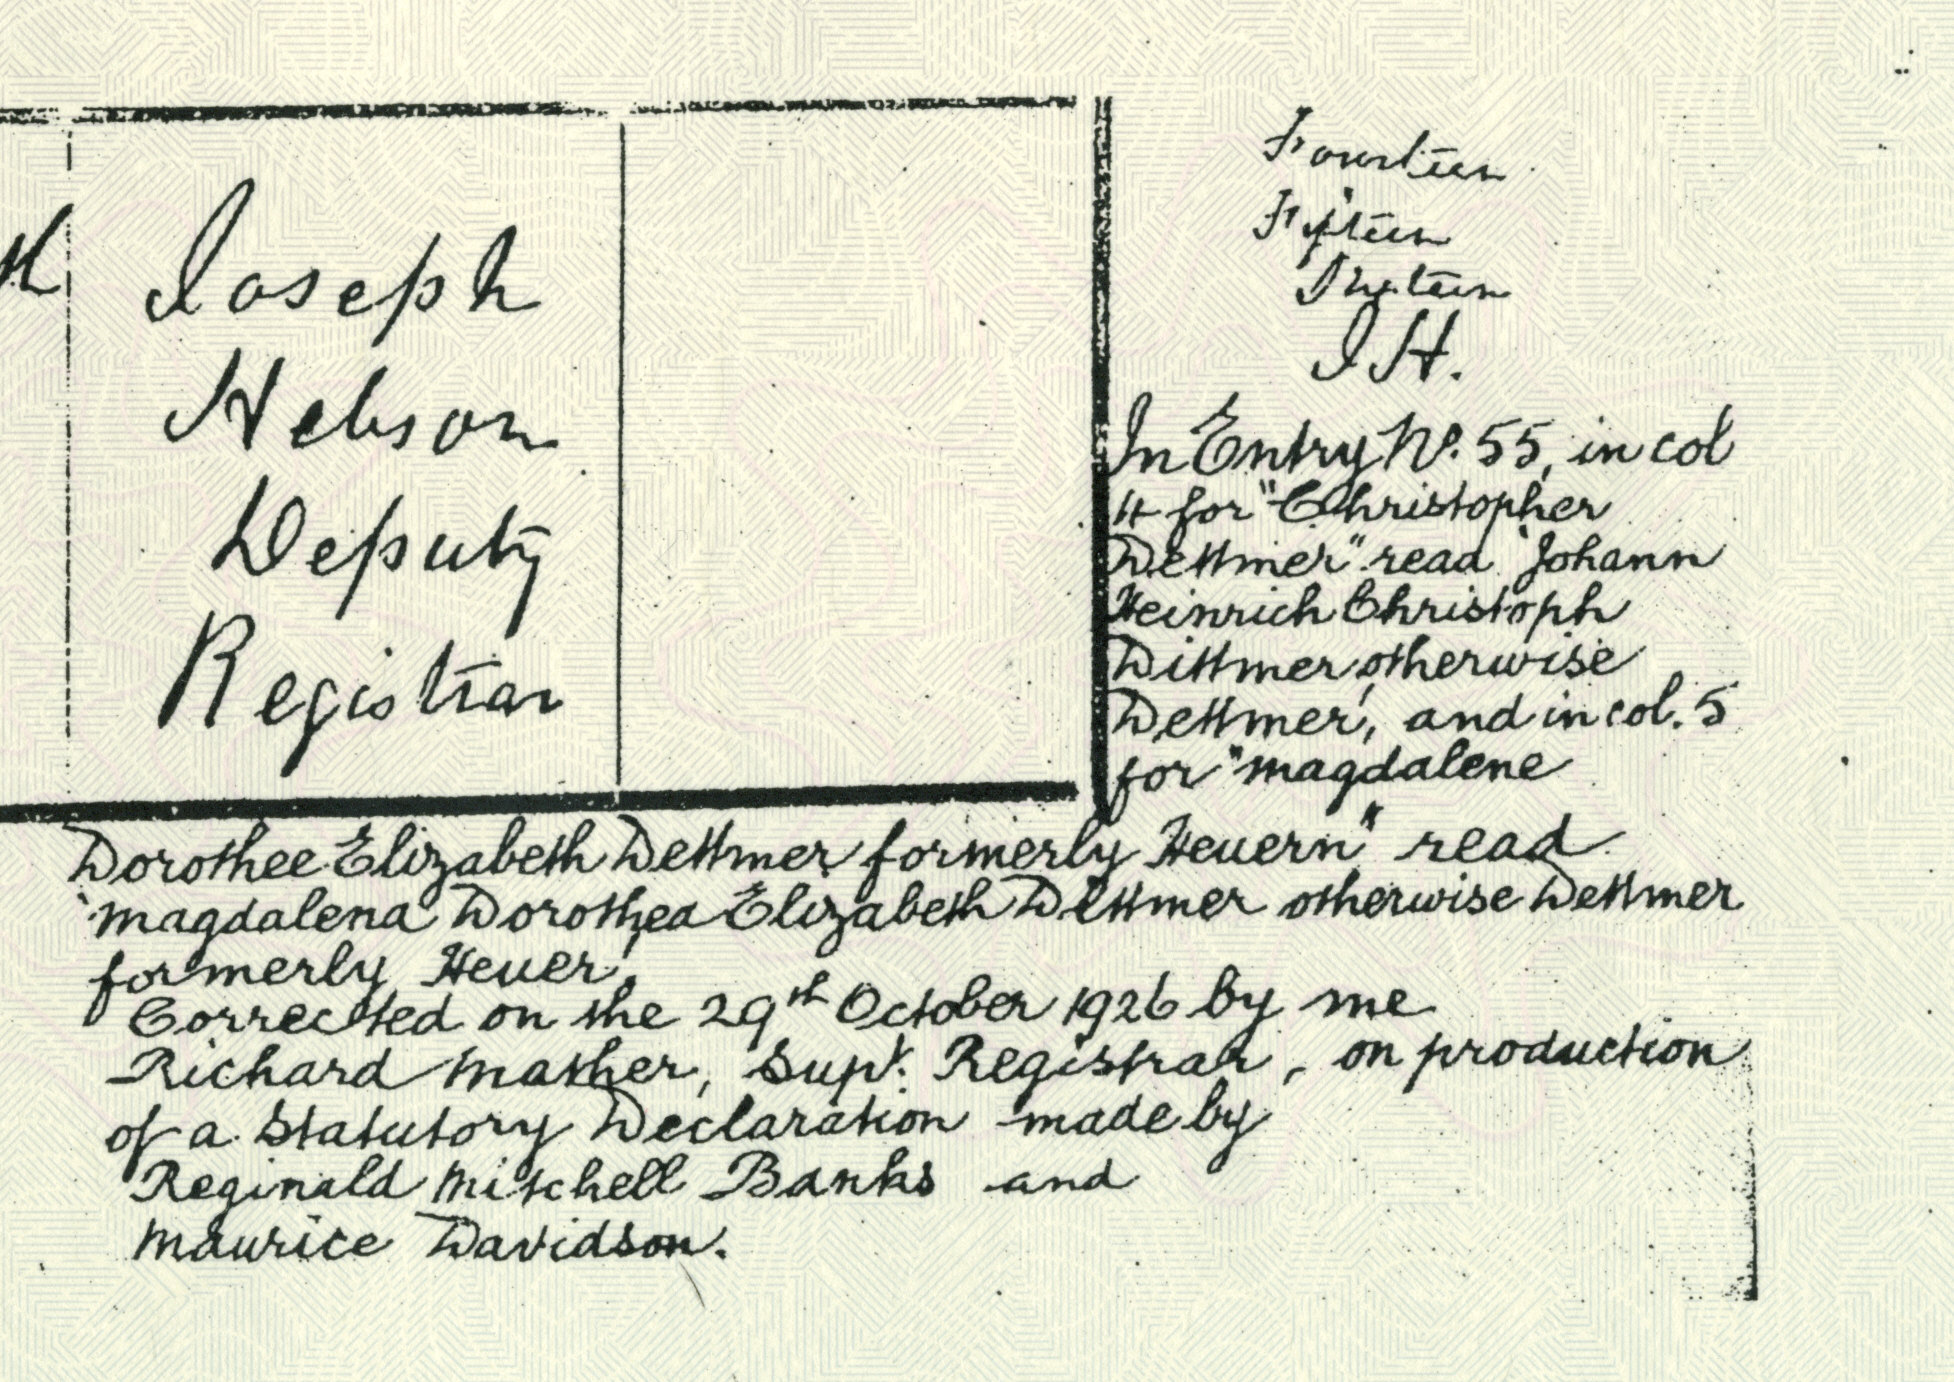 Joseph
Hebson
Deputy
Registrar
Fourteen
Fifteen
Sixteen
J H.
In Entry No. 55, in col
4 for "Christopher
Dettmer" read "Johann
Heinrich Christoph
Dittmer otherwise
Dettmer, and in col. 5
for "Magdalene
Dorothee Elizabeth Dettmer formerly Heuern" read
"Magdalena Dorothea Elizabeth Dittmer otherwise Dettmer
formerly Heuer"
Corrected on the 29th October 1926 by me
Richard Mather, Supt. Registrar, on production
of a Statutory Declaration made by
Reginald Mitchell Banks and
Maurice Davidson.